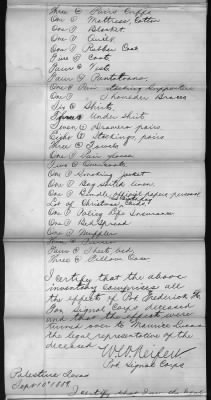 Three @ Pairs Cuffs
One @ Mattress, Cotton
One @ Blanket
One @ Quilt
One @ Rubber Coat
Five @ Coats
Four @ Vest
Four @ Pantaloons,
One @ Pair Stocking Supporters
One @ " Shoulder Braces
Six @ Shirts
@ Under shirt
Seven @ Drawers pairs.
Eight @ Stockings, pairs.
Three @ Towels
One @ Pair gloves
Two @ Overcoats
One @ Smoking jacket
One @ Bag Soiled linen
One @ Bundle official papers personal
Lot of Christmas Cards
One @ Policy Life Insurance
One @ Bed Spread
One @ Muffler
Pair @ Sheets, bed,
Three @ Pillow Case
I certify that the above
inventory comprises all
the effects of Pvt Frederick
Fox Signal Corps deceased
and that the effects were
turned over to Maurice
the legal representative of the
deceased
Pvt Signal Corps
Palestine Texas
Sept 10th 1888
I certify that I am the